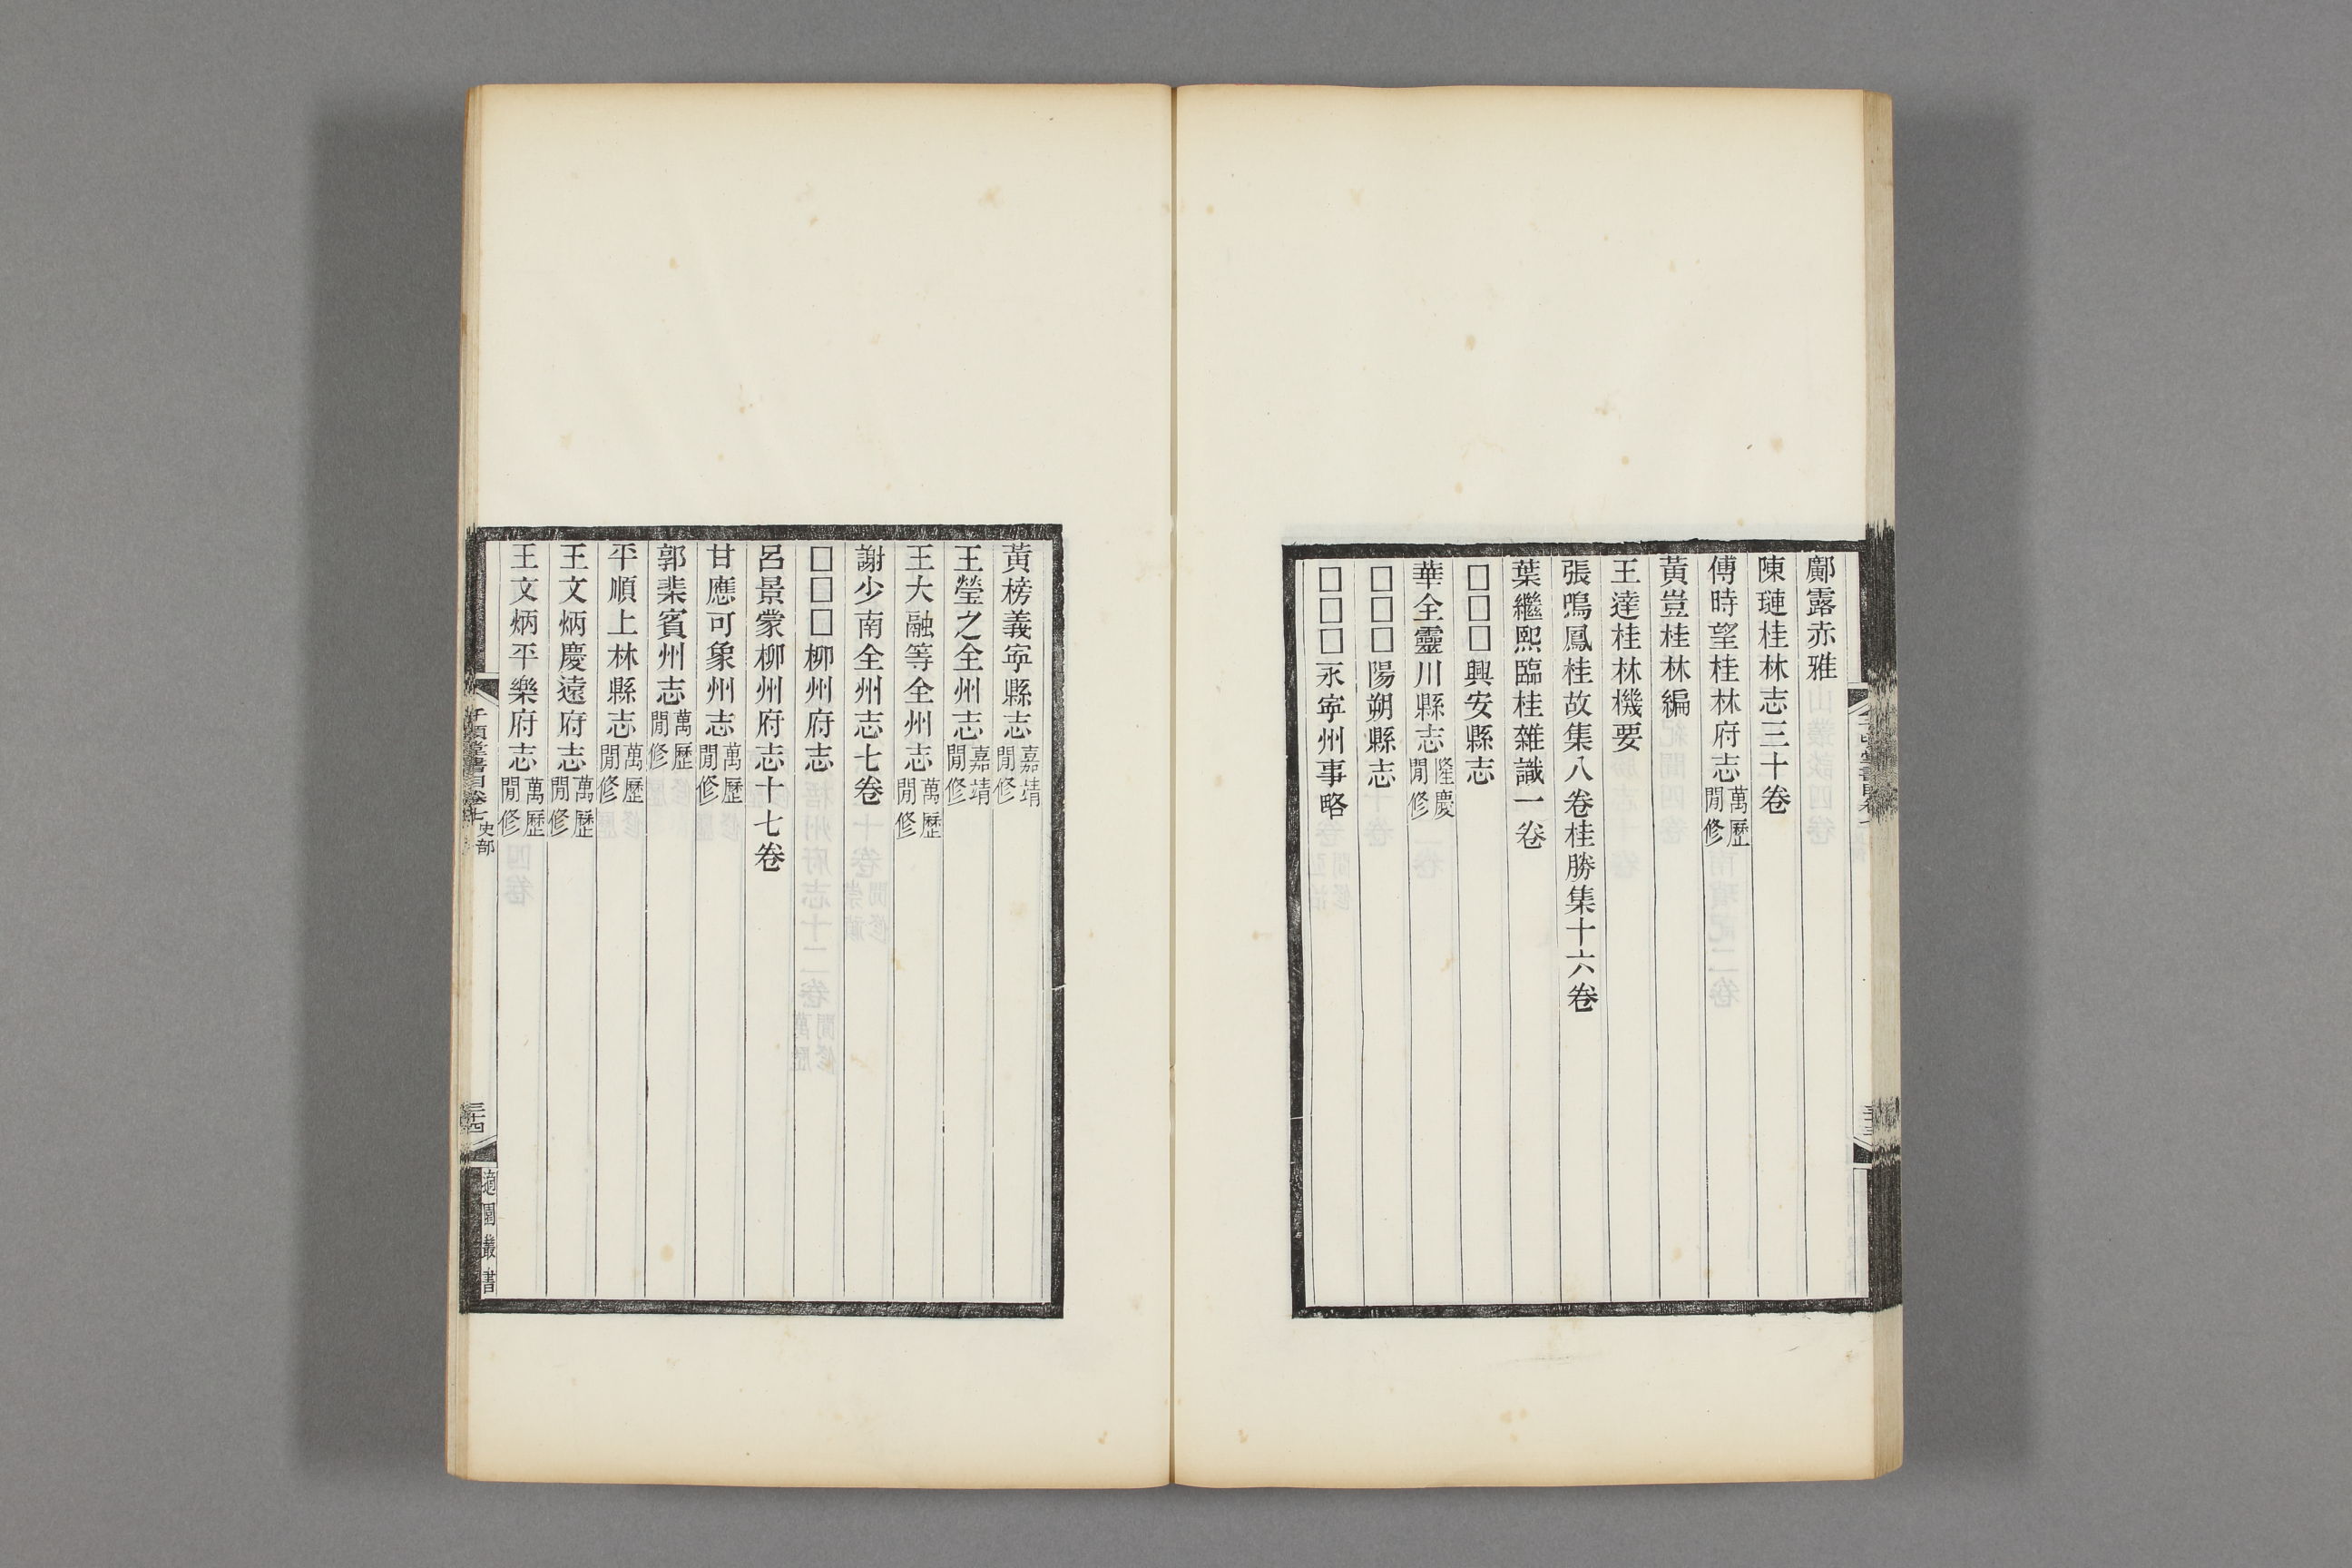 鄺露赤雅
陳璉桂林志三十卷
傅時望桂林府志萬歷閒修
黃豈桂林編
王達桂林機要
張鳴鳳桂故集八卷桂勝集十六卷
葉繼熙臨桂雜識一卷
□□□興安縣志
華全靈川縣志隆慶閒修
□□□陽朔縣志
□□□永寧州事略
黃榜義寧縣志嘉靖閒修
王瑩之全州志嘉靖閒修
王大融等全州志萬歷閒修
謝少南全州志七卷
□□□柳州府志
呂景蒙柳州府志十七卷
甘應可象州志萬歷閒修
郭棐賓州志萬歷閒修
平順上林縣志萬歷閒修
王文炳慶遠府志萬歷閒修
王文炳平樂府志萬歷閒修
千頃堂書目卷七 史部
三十四
適園叢書